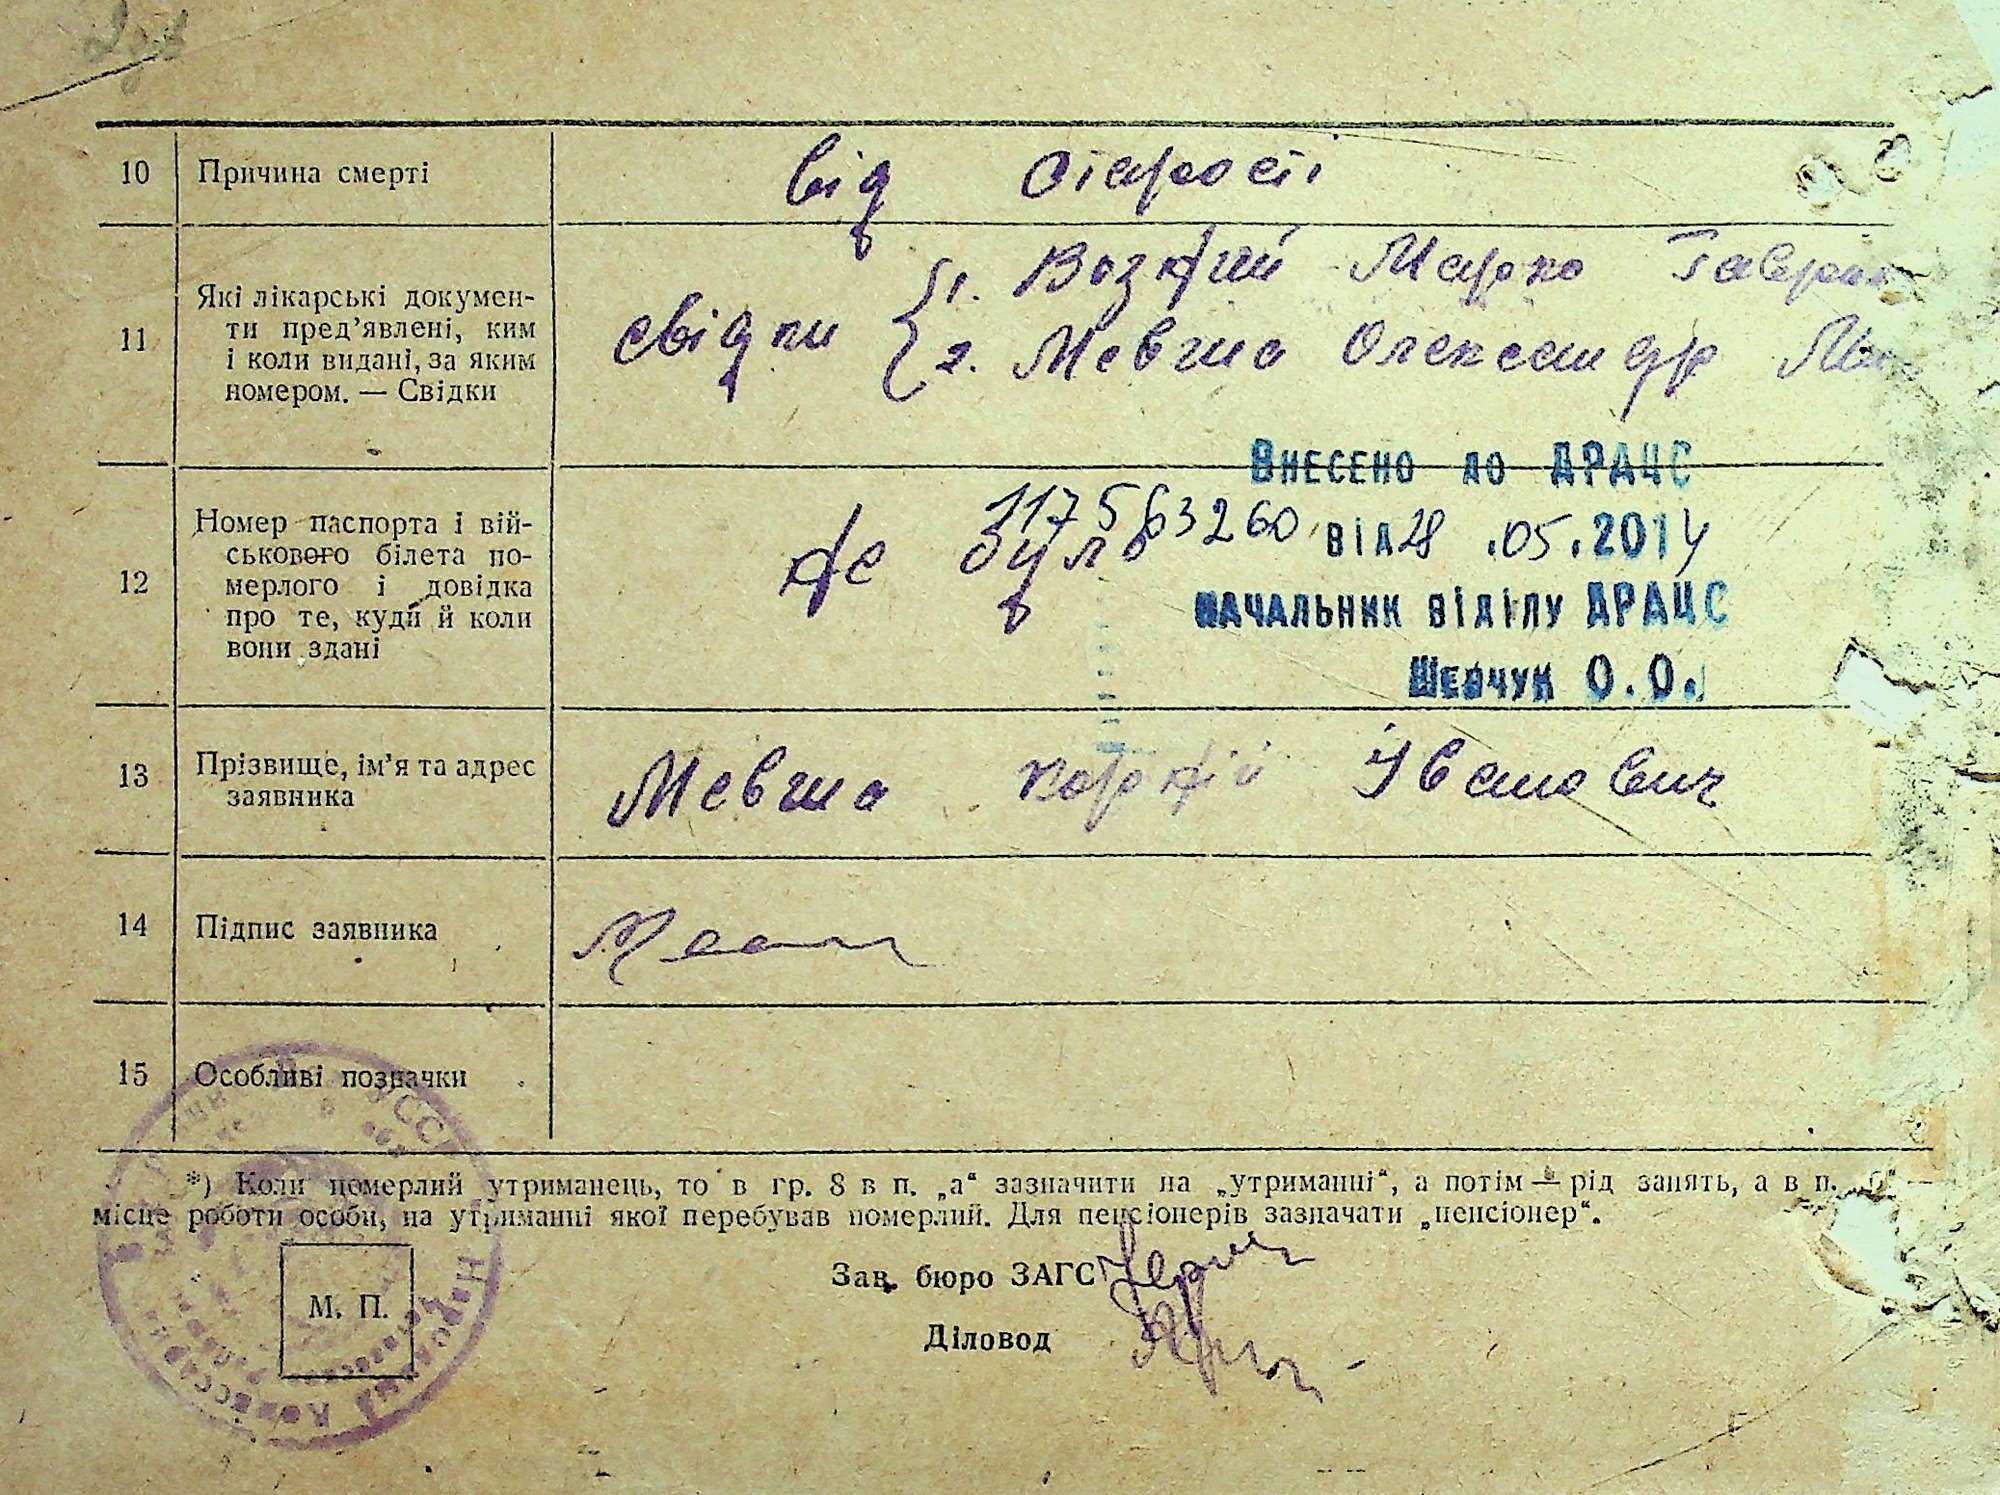 10 Причина смерті від старості
11 Які лікарські докумен-
ти пред’явлені, ким
і коли видані, за яким
номером. — Свідки
свідки 1. Марко
2. Мевша Олександр
Внесено до ДРАЦС
117563260 від 28.05.2014
Начальник відділу ДРАЦС
Шевчук О.О.
12 Номер паспорта і вій-
ськового білета по-
мерлого і довідка
про те, куди й коли
вони здані
не було
13 Прізвище, ім’я та адрес
заявника
Мевша Іванович
14 Підпис заявника
15 Особливі позначки
*) Коли померлий утриманець, то в гр. 8 в п. „а“ зазначити на „утриманні“, а потім — рід занять, а в п. „б“ —
місце роботи особи, на утриманні якої перебував померлий. Для пенсіонерів зазначати „пенсіонер“.
Зав. бюро ЗАГС
М. П.
Діловод